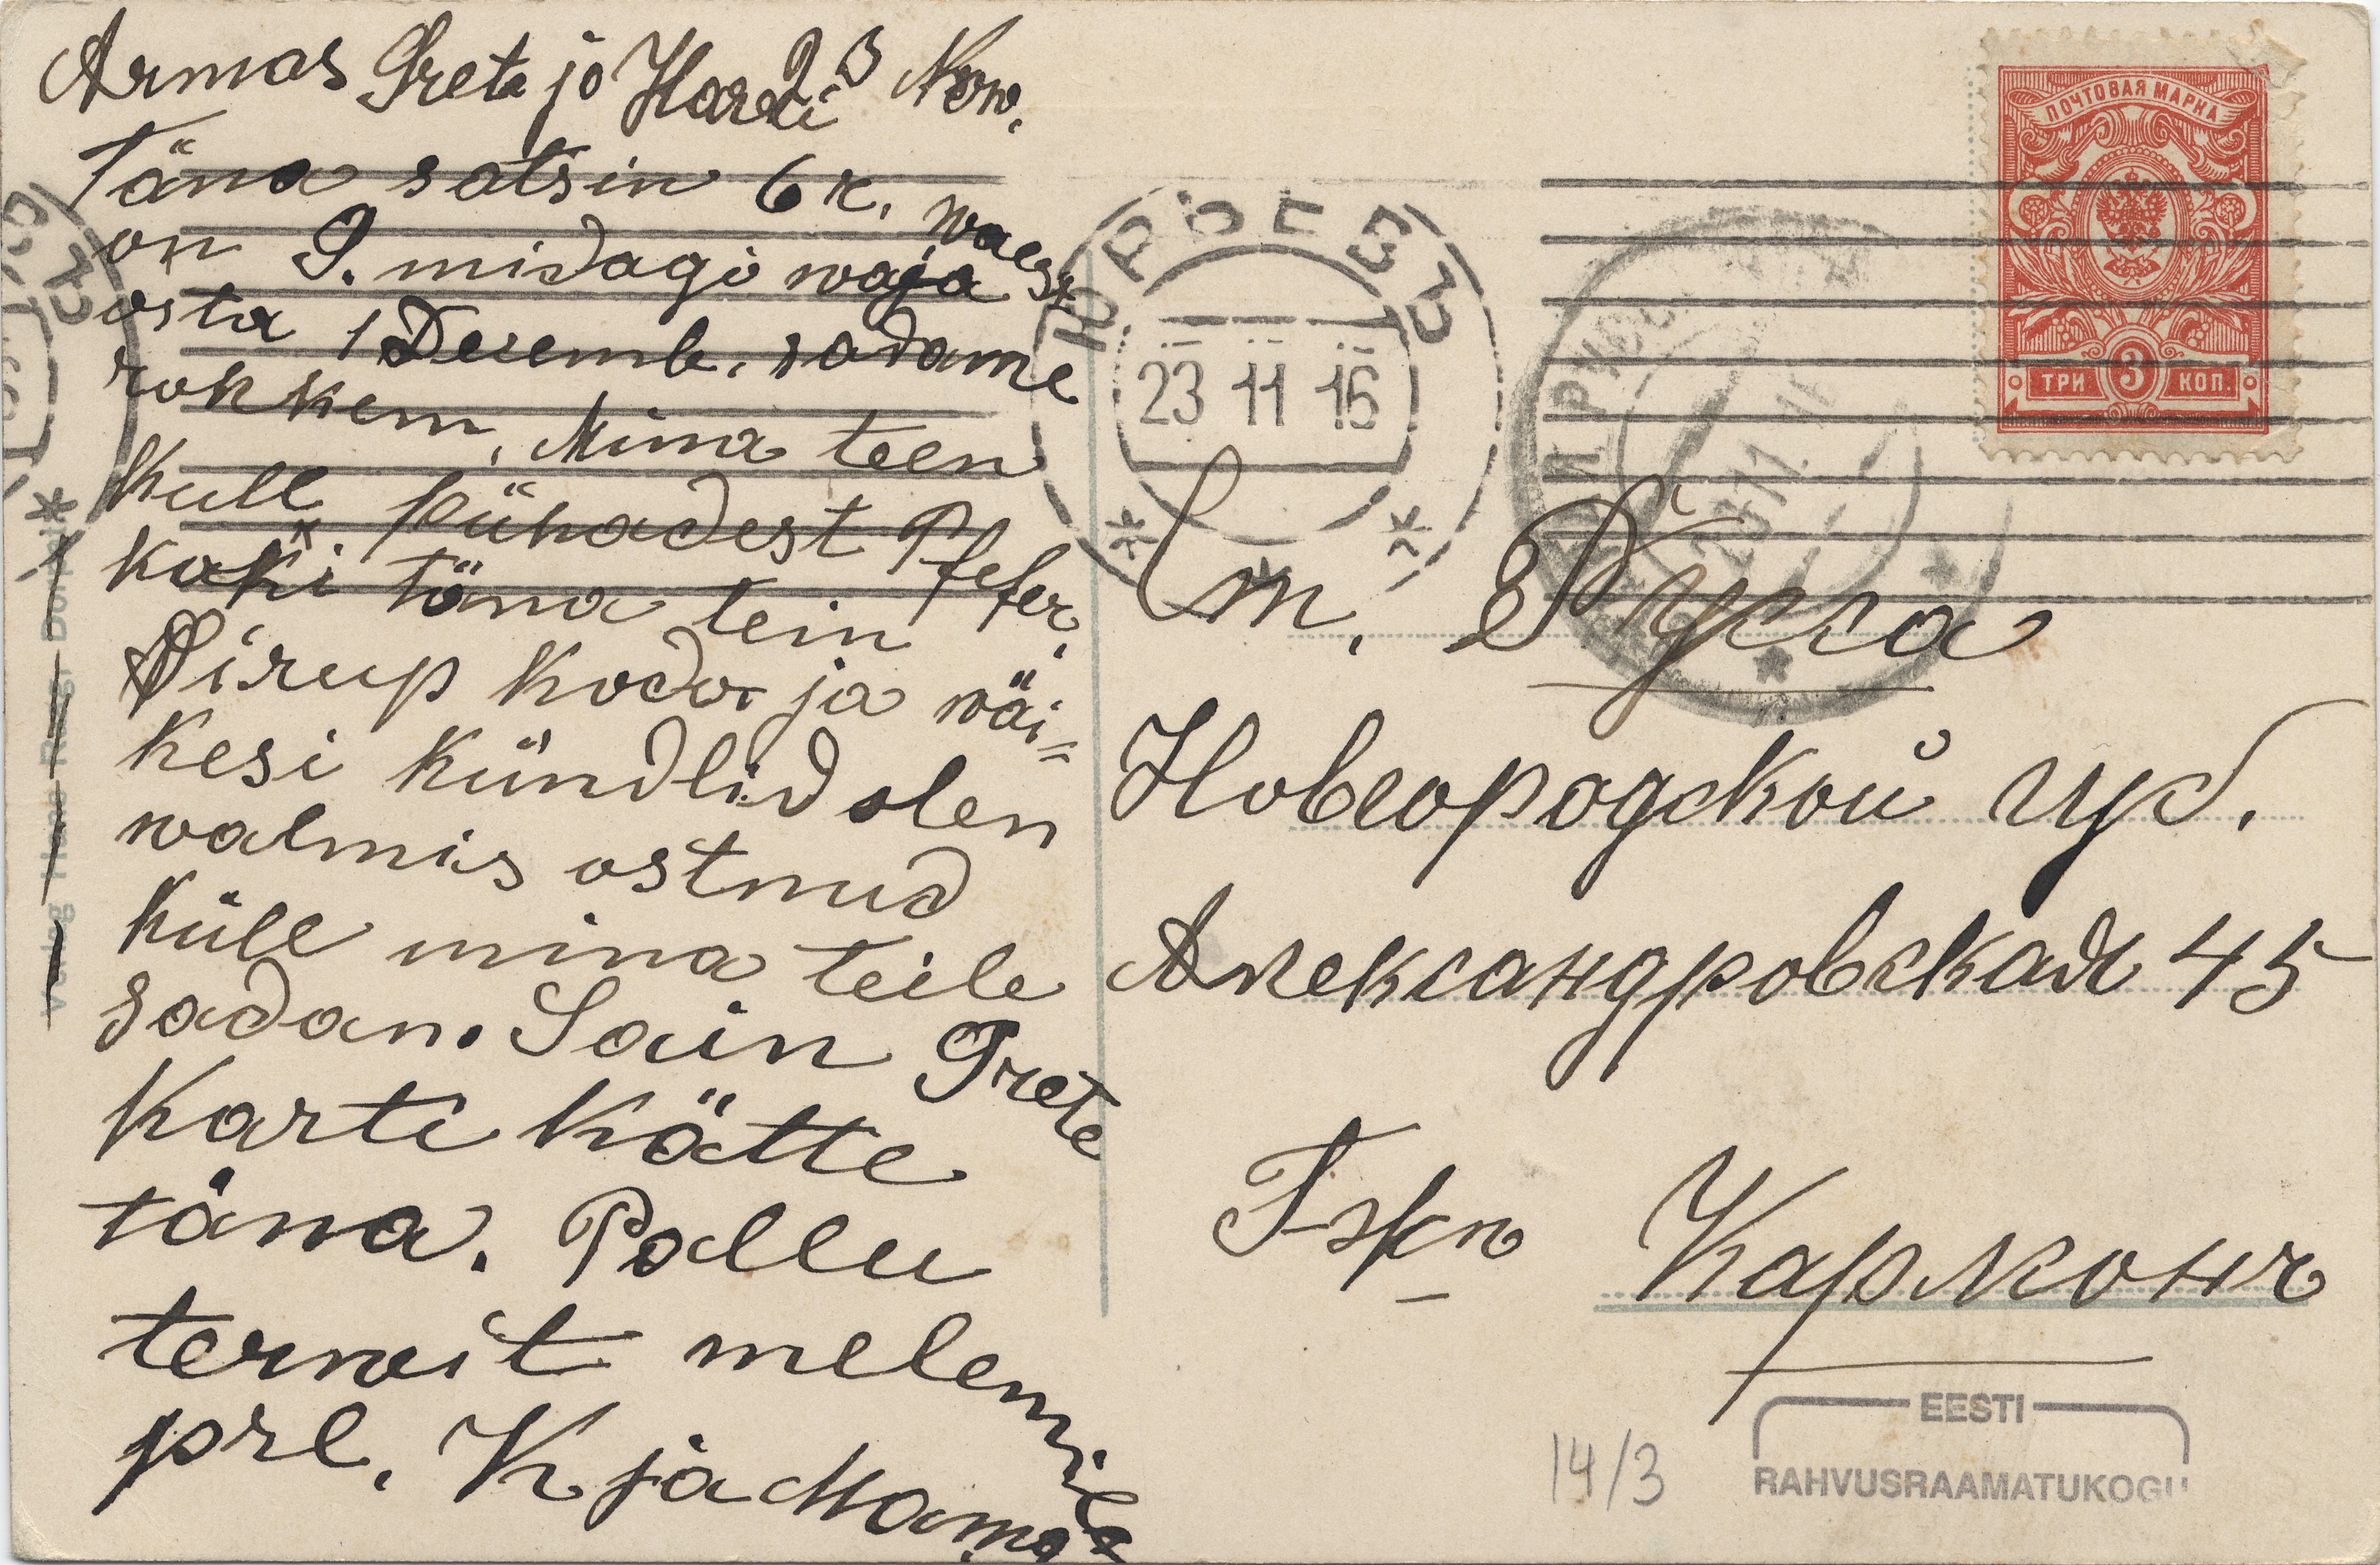 Armas Greta jo Hardi 23 Now.
Täna satsin 6 r. waest
on S. midagi waja
osta 1 Desemb. sadame
rohkem. Mina teen
kull pühadest Pfefer,
koki täna tein
Sirup koda ja wäi=
kesi kündlid olen
walmis ostnud
küll mina teile
sadan. Sain Grete
Karti kätte
täna. Pallu
terwit melemile
prl. K ja Mama
ПОЧТОВАЯ МАРКА
ТРИ 3 КОП.
ЮРЬЕВЪ
23 11 15
Ст. Русса
Новгородской губ.
Александровская 45
Г-жѣ Кармонъ
14/3
EESTI
RAHVUSRAAMATUKOGU